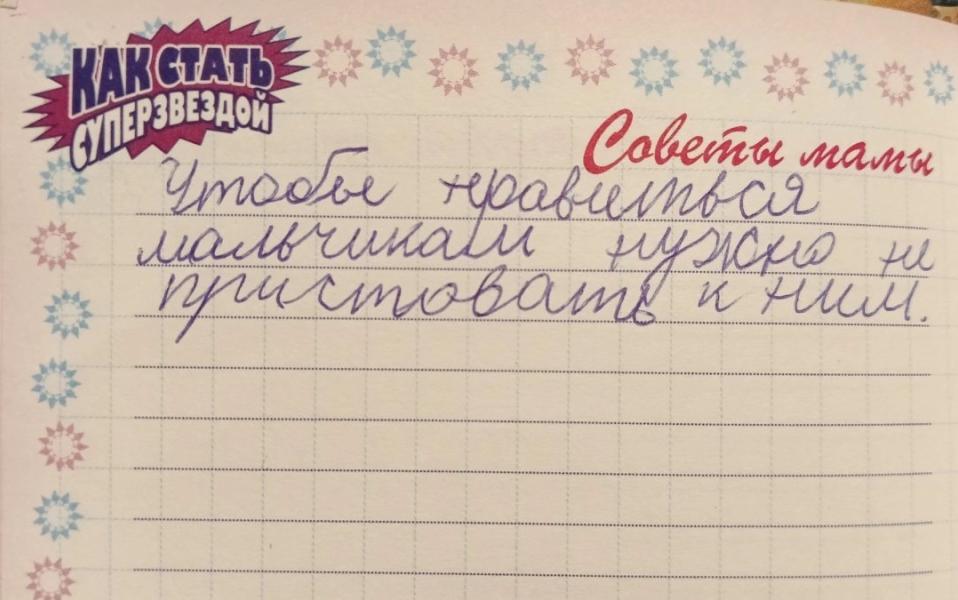 КАК СТАТЬ
СУПЕРЗВЕЗДОЙ
Советы мамы
Чтобы нравиться
мальчикам нужно не
пристовать к ним.